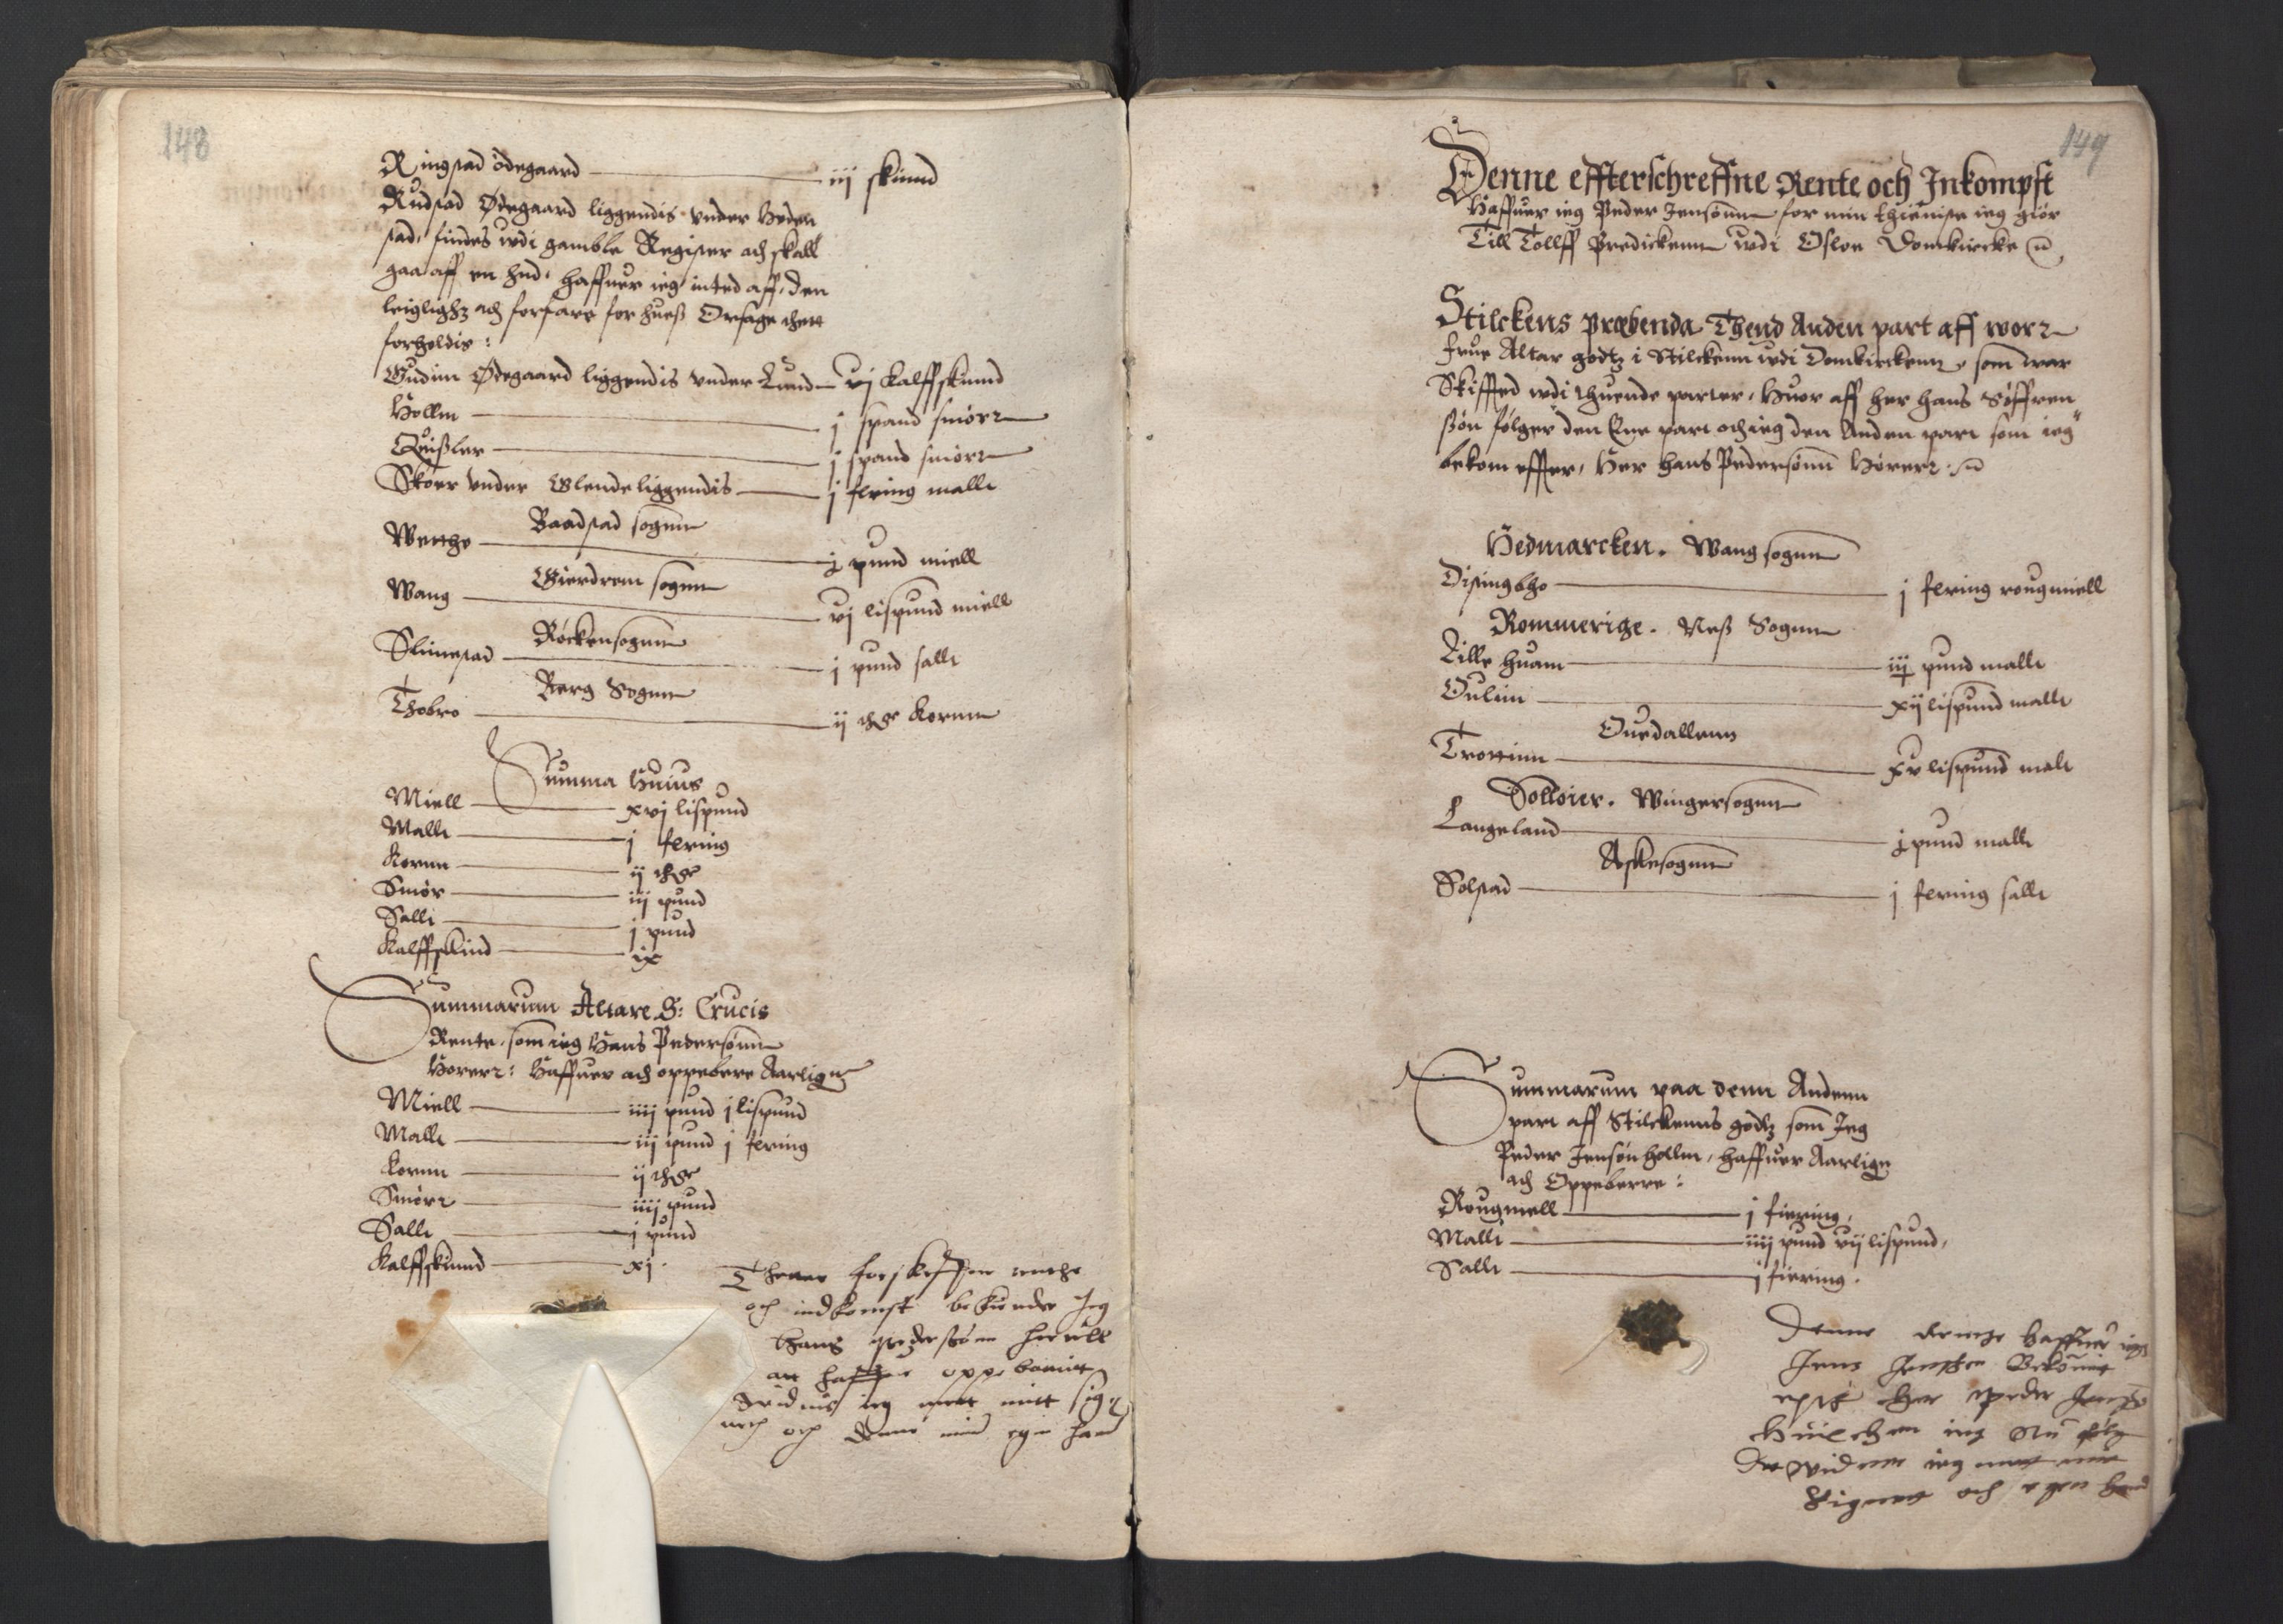 148
Ringstad ødegaard — iij skinnd
Rudstad Ødegaard liggendis vnder Heden
stad, findes wdi gamble Register och skall
gaa aff en hud, haffuer ieg inted aff, den
leiglighz och forfare for hues Orsage thett
forholdis:
Gudim Ødegaard liggendis vnder Lund — vj kalffskinnd
Hollm — j spand smörr
Quisler — j spand smörr
Skoer vnder Glende liggendis — j fering mallt
Baadstad sognn
Wetthe — j pund miell
Gierdrem sognn
Wang — vj lispund miell
Röckensognn
Slimestad — j pund sallt
Berg Sognn
Thobro — ij  Kornn
Summa Huius
Miell — xvj lispund
Mallt — j fering
Kornn — ij
Smör — iij pund
Sallt — j pund
Kalffskind — ix
Summarum Altare S: Crucis
Rente, som ieg Hans Pedersönn
Horerr: Haffuer och oppebere Aarlign
Miell — iiij pund j lispund
Mallt — iij pund j fering
Kornn — ij
Smörr — iiij pund
Sallt — j pund
Kalffskinnd — xj.
Thenne forskreffne renthe
och indkomst bekiender Jeg
Hans pedersønn
att haffue oppebaaritt
 ieg mett mitt sig
nett och  min egen hand
149
Denne effterschreffne Rente och Inkompst
Haffuer ieg Peder Jensönn for min thieniste ieg giör
Till Tollff Predickenn wdi Osloe Domkircke
Stilckens præbenda Thend Anden part aff worr
frue Altar godtz i Stilckenn wdi Domkirckenn, som war
Skifffted wdi thuende parter, Huor aff her Hans Söffren
ßön fölger den Ene part och ieg den Anden part som ieg
bekom effter, Her Hans Pedersönn Hörerr.
Hedmarcken. Wang sognn
Disingbho — j fering rougmiell
Rommerige. Neß Sognn
Lille Huam — iij pund mallt
Oulim — xij lispund mallt
Ouedallenn
Trottinn — xv lispund malt
Solloier. Wingersognn
Langeland — j pund mallt
Askesognn
Solstad — j fering sallt
Summarum paa denn Andenn
part aff Stilckenns godtz som Jeg
Peder Jensön Hollm, haffuer Aarlign
och Oppeberre:
Rougmell — j fiering,
Mallt — iiij pund vij lispund,
Sallt — j fiering.
Denne Renthe haffuer ieg
Jens Jensßen Bekommit
epter Her Peder Jensßøn
Huilcken ieg Nu
Det widner ieg mett mit
Signett och egen hand